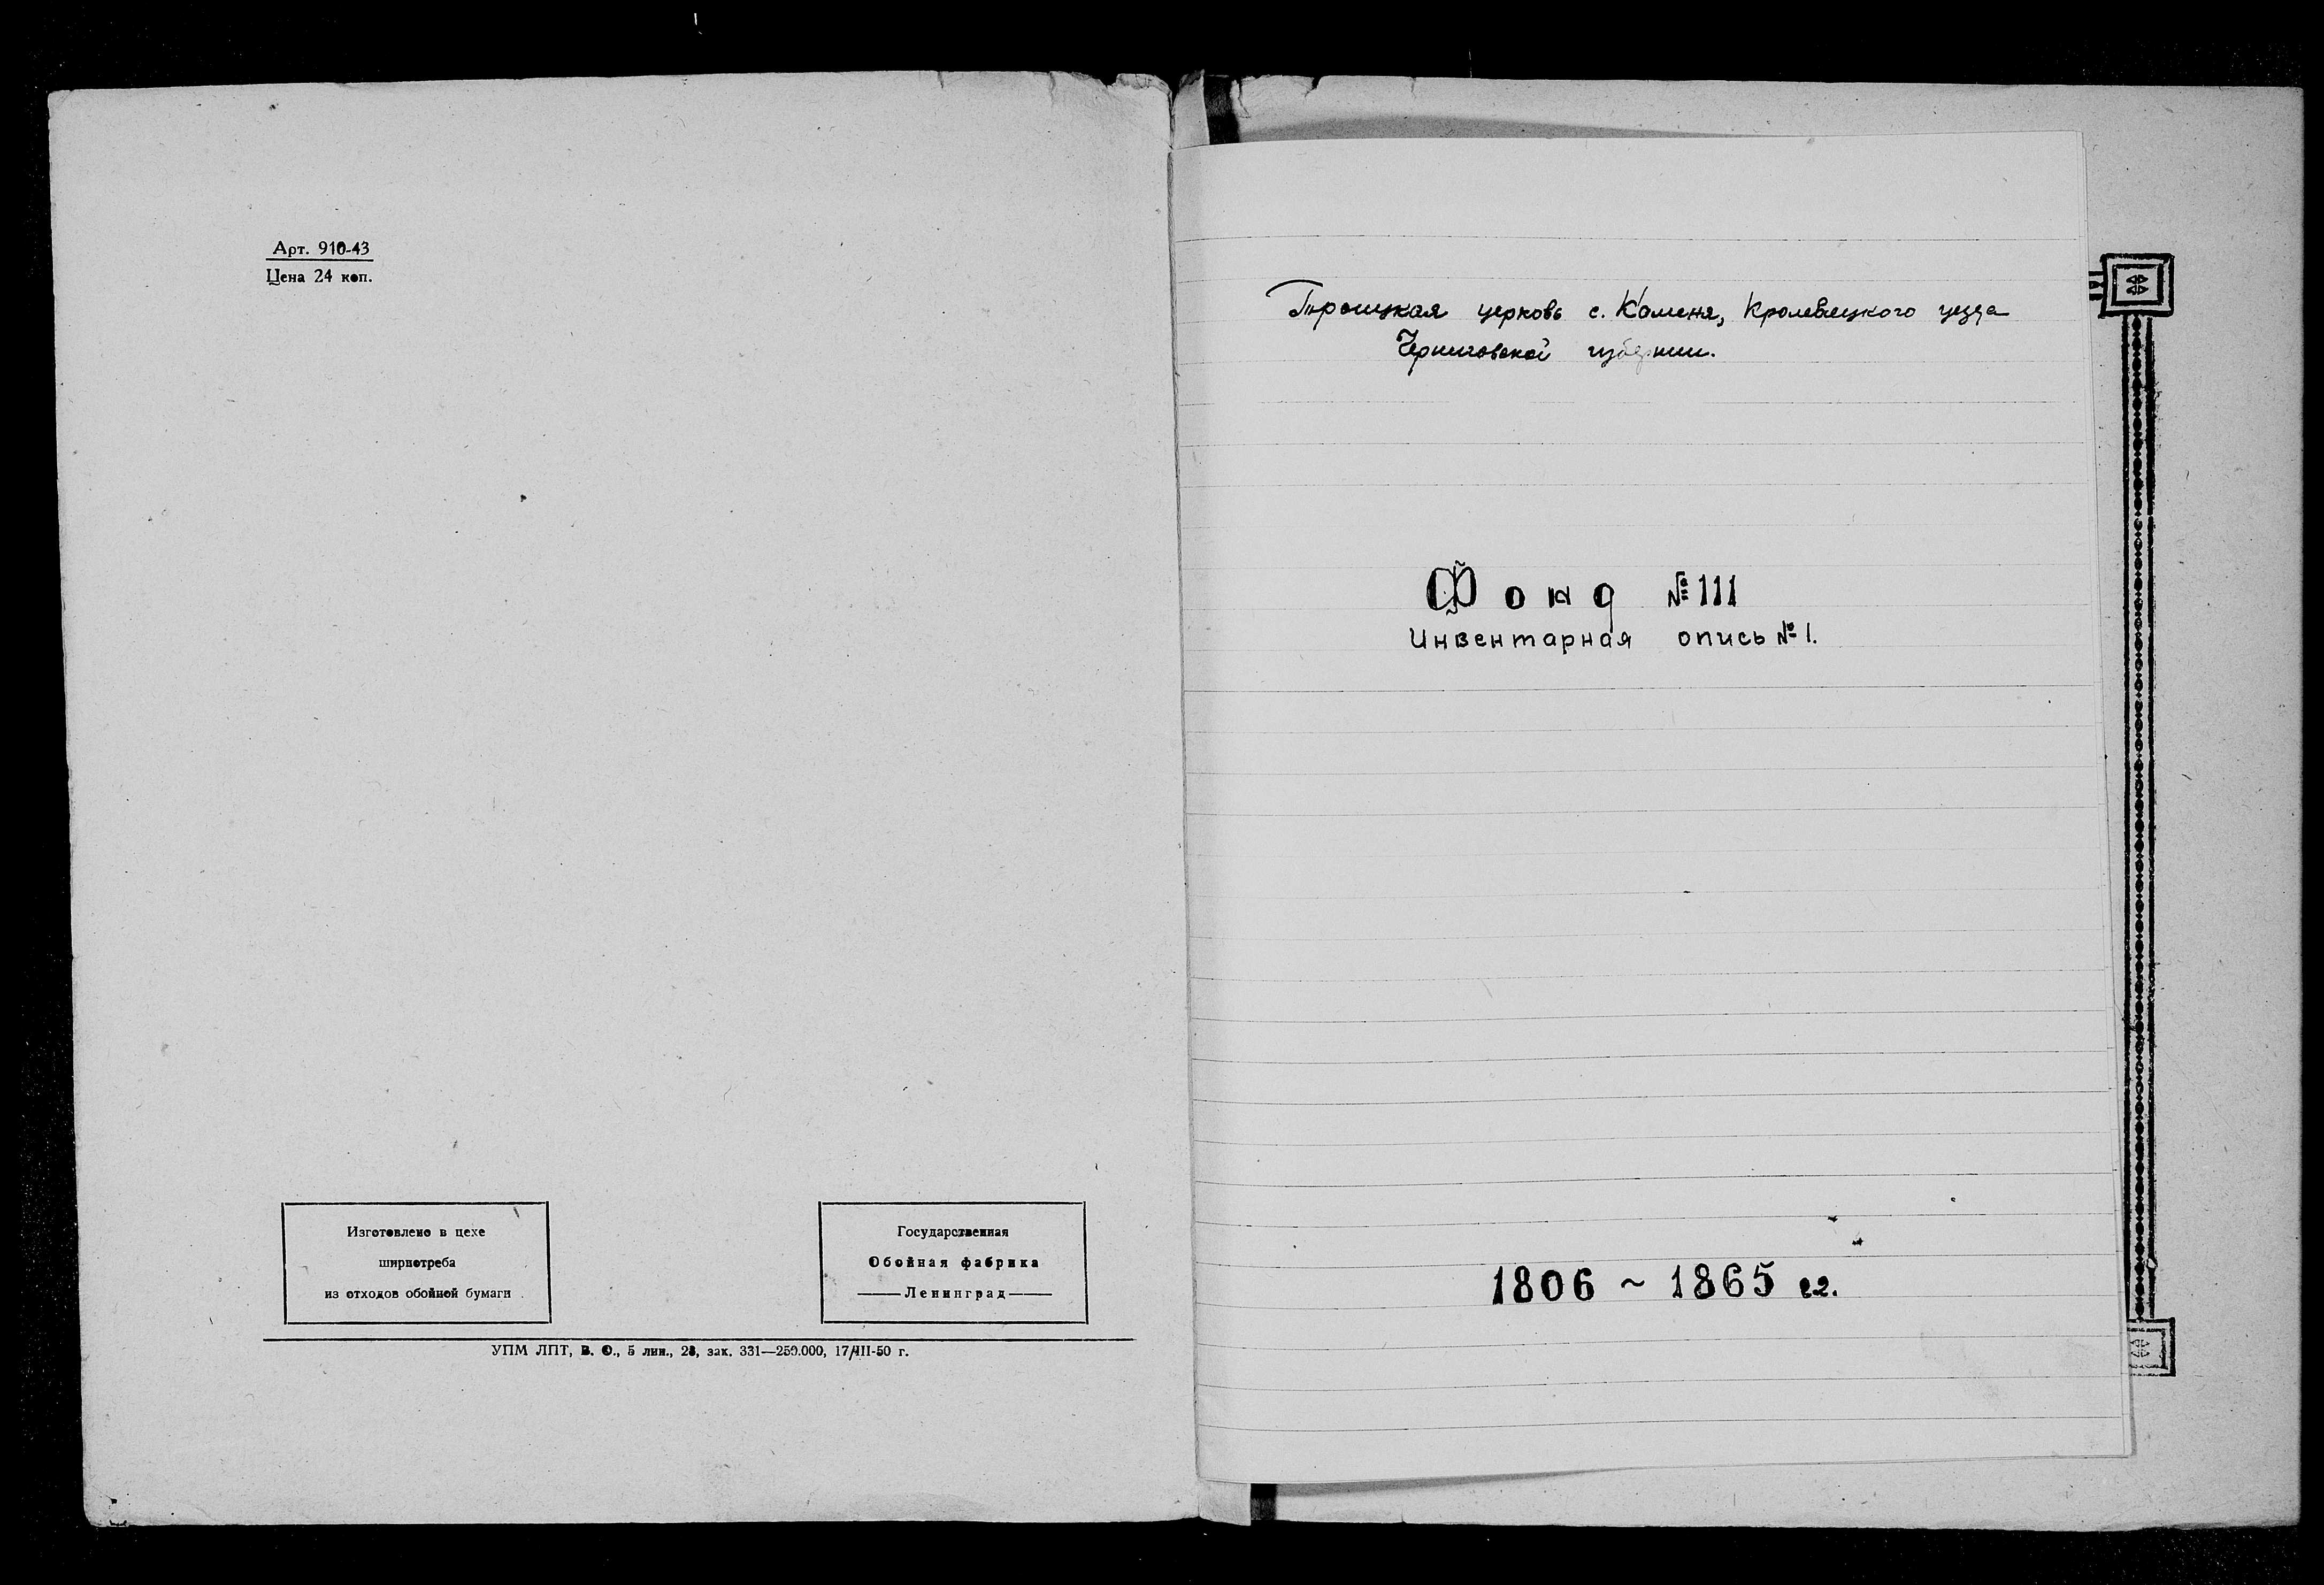 Арт. 910-43
Цена 24 коп.
Изготовлено в цехе
ширпотреба
из отходов обойной бумаги
Государственная
Обойная фабрика
Ленинград
УПМ ЛПТ, В. О., 5 лин., 28, зак. 331—250.000, 17/VIII-50 г.
Троицкая церковь с. Каменя, Кролевецкого уезда
Черниговской губернии.
Фонд №111
Инвентарная опись №1.
1806 ~ 1865 гг.